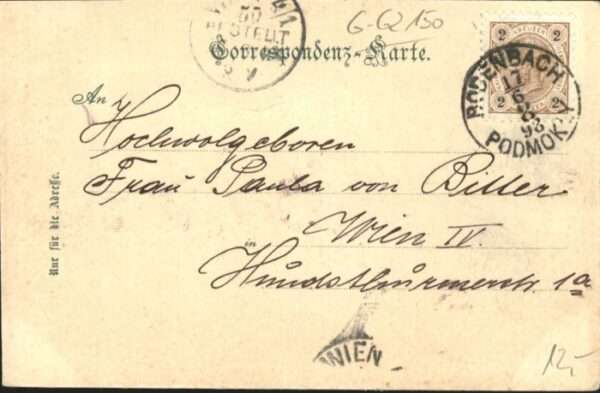 BESTELLT
G-Q 150
Correspondenz-Karte.
2 KREUZER 2
2 2
BODENBACH
17
6
8
98
PODMOKLY
An
Hochwolgeboren
Frau Paula von Bitter
Wien IV.
in
Hundsthurmerstr. 1a
Nur für die Adresse.
WIEN
12,-